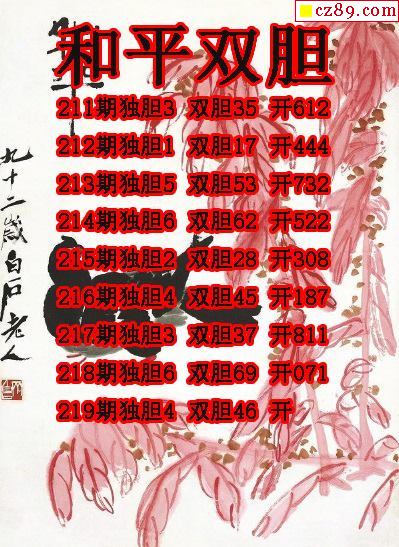 cz89.com
和平双胆
211期独胆3 双胆35 开612
212期独胆1 双胆17 开444
213期独胆5 双胆53 开732
214期独胆6 双胆62 开522
215期独胆2 双胆28 开308
216期独胆4 双胆45 开187
217期独胆3 双胆37 开811
218期独胆6 双胆69 开071
219期独胆4 双胆46 开
九十二岁白石老人